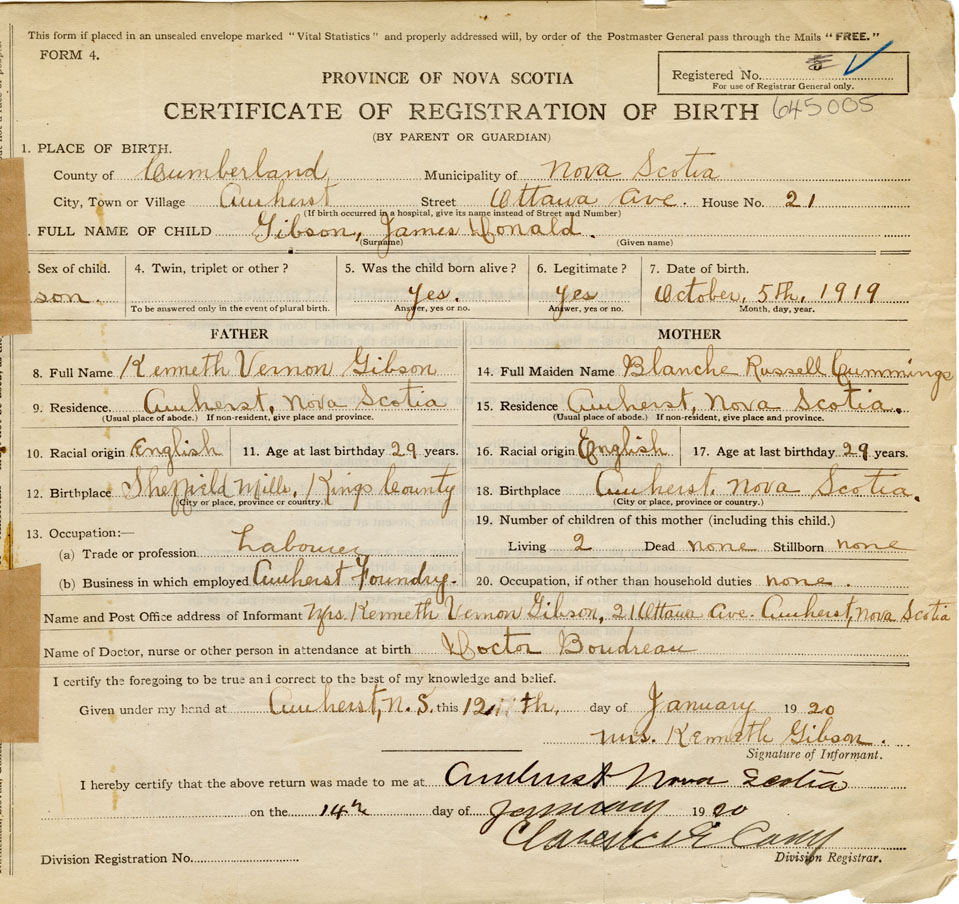 This form if placed in an unsealed envelope marked "Vital Statistics" and properly addressed will, by order of the Postmaster General pass through the Mails "FREE."
FORM 4.
Registered No.
For use of Registrar General only.
PROVINCE OF NOVA SCOTIA
CERTIFICATE OF REGISTRATION OF BIRTH 645005
(BY PARENT OR GUARDIAN)
1. PLACE OF BIRTH.
County of Cumberland Municipality of Nova Scotia
City, Town or Village Amherst Street Ottawa Ave. House No. 21
(If birth occurred in a hospital, give its name instead of Street and Number)
FULL NAME OF CHILD Gibson, James Donald.
(Surname) (Given name)
Sex of child. 4. Twin, triplet or other? 5. Was the child born alive? 6. Legitimate? 7. Date of birth.
son. Yes. Yes October, 5th, 1919
To be answered only in the event of plural birth. Answer, yes or no. Answer, yes or no. Month, day, year.
FATHER MOTHER
8. Full Name Kenneth Vernon Gibson 14. Full Maiden Name Blanche Russell Cummings
9. Residence. Amherst, Nova Scotia 15. Residence Amherst, Nova Scotia.
(Usual place of abode.) If non-resident, give place and province. (Usual place of abode.) If non-resident, give place and province.
10. Racial origin English 11. Age at last birthday 29 years. 16. Racial origin English 17. Age at last birthday 29 years.
12. Birthplace Sheffield Mills, Kings County 18. Birthplace Amherst, Nova Scotia.
(City or place, province or country.) (City or place, province or country.)
13. Occupation:— 19. Number of children of this mother (including this child.)
(a) Trade or profession Labourer Living 2 Dead none Stillborn none
(b) Business in which employed Amherst Foundry. 20. Occupation, if other than household duties none.
Name and Post Office address of Informant Mrs. Kenneth Vernon Gibson, 21 Ottawa Ave. Amherst, Nova Scotia
Name of Doctor, nurse or other person in attendance at birth Doctor Boudreau
I certify the foregoing to be true and correct to the best of my knowledge and belief.
Given under my hand at Amherst, N. S. this 12th, day of January 1920
Mrs. Kenneth Gibson.
Signature of Informant.
I hereby certify that the above return was made to me at Amherst Nova Scotia
on the 14th day of January 1920
Clarence E
Division Registration No. Division Registrar.